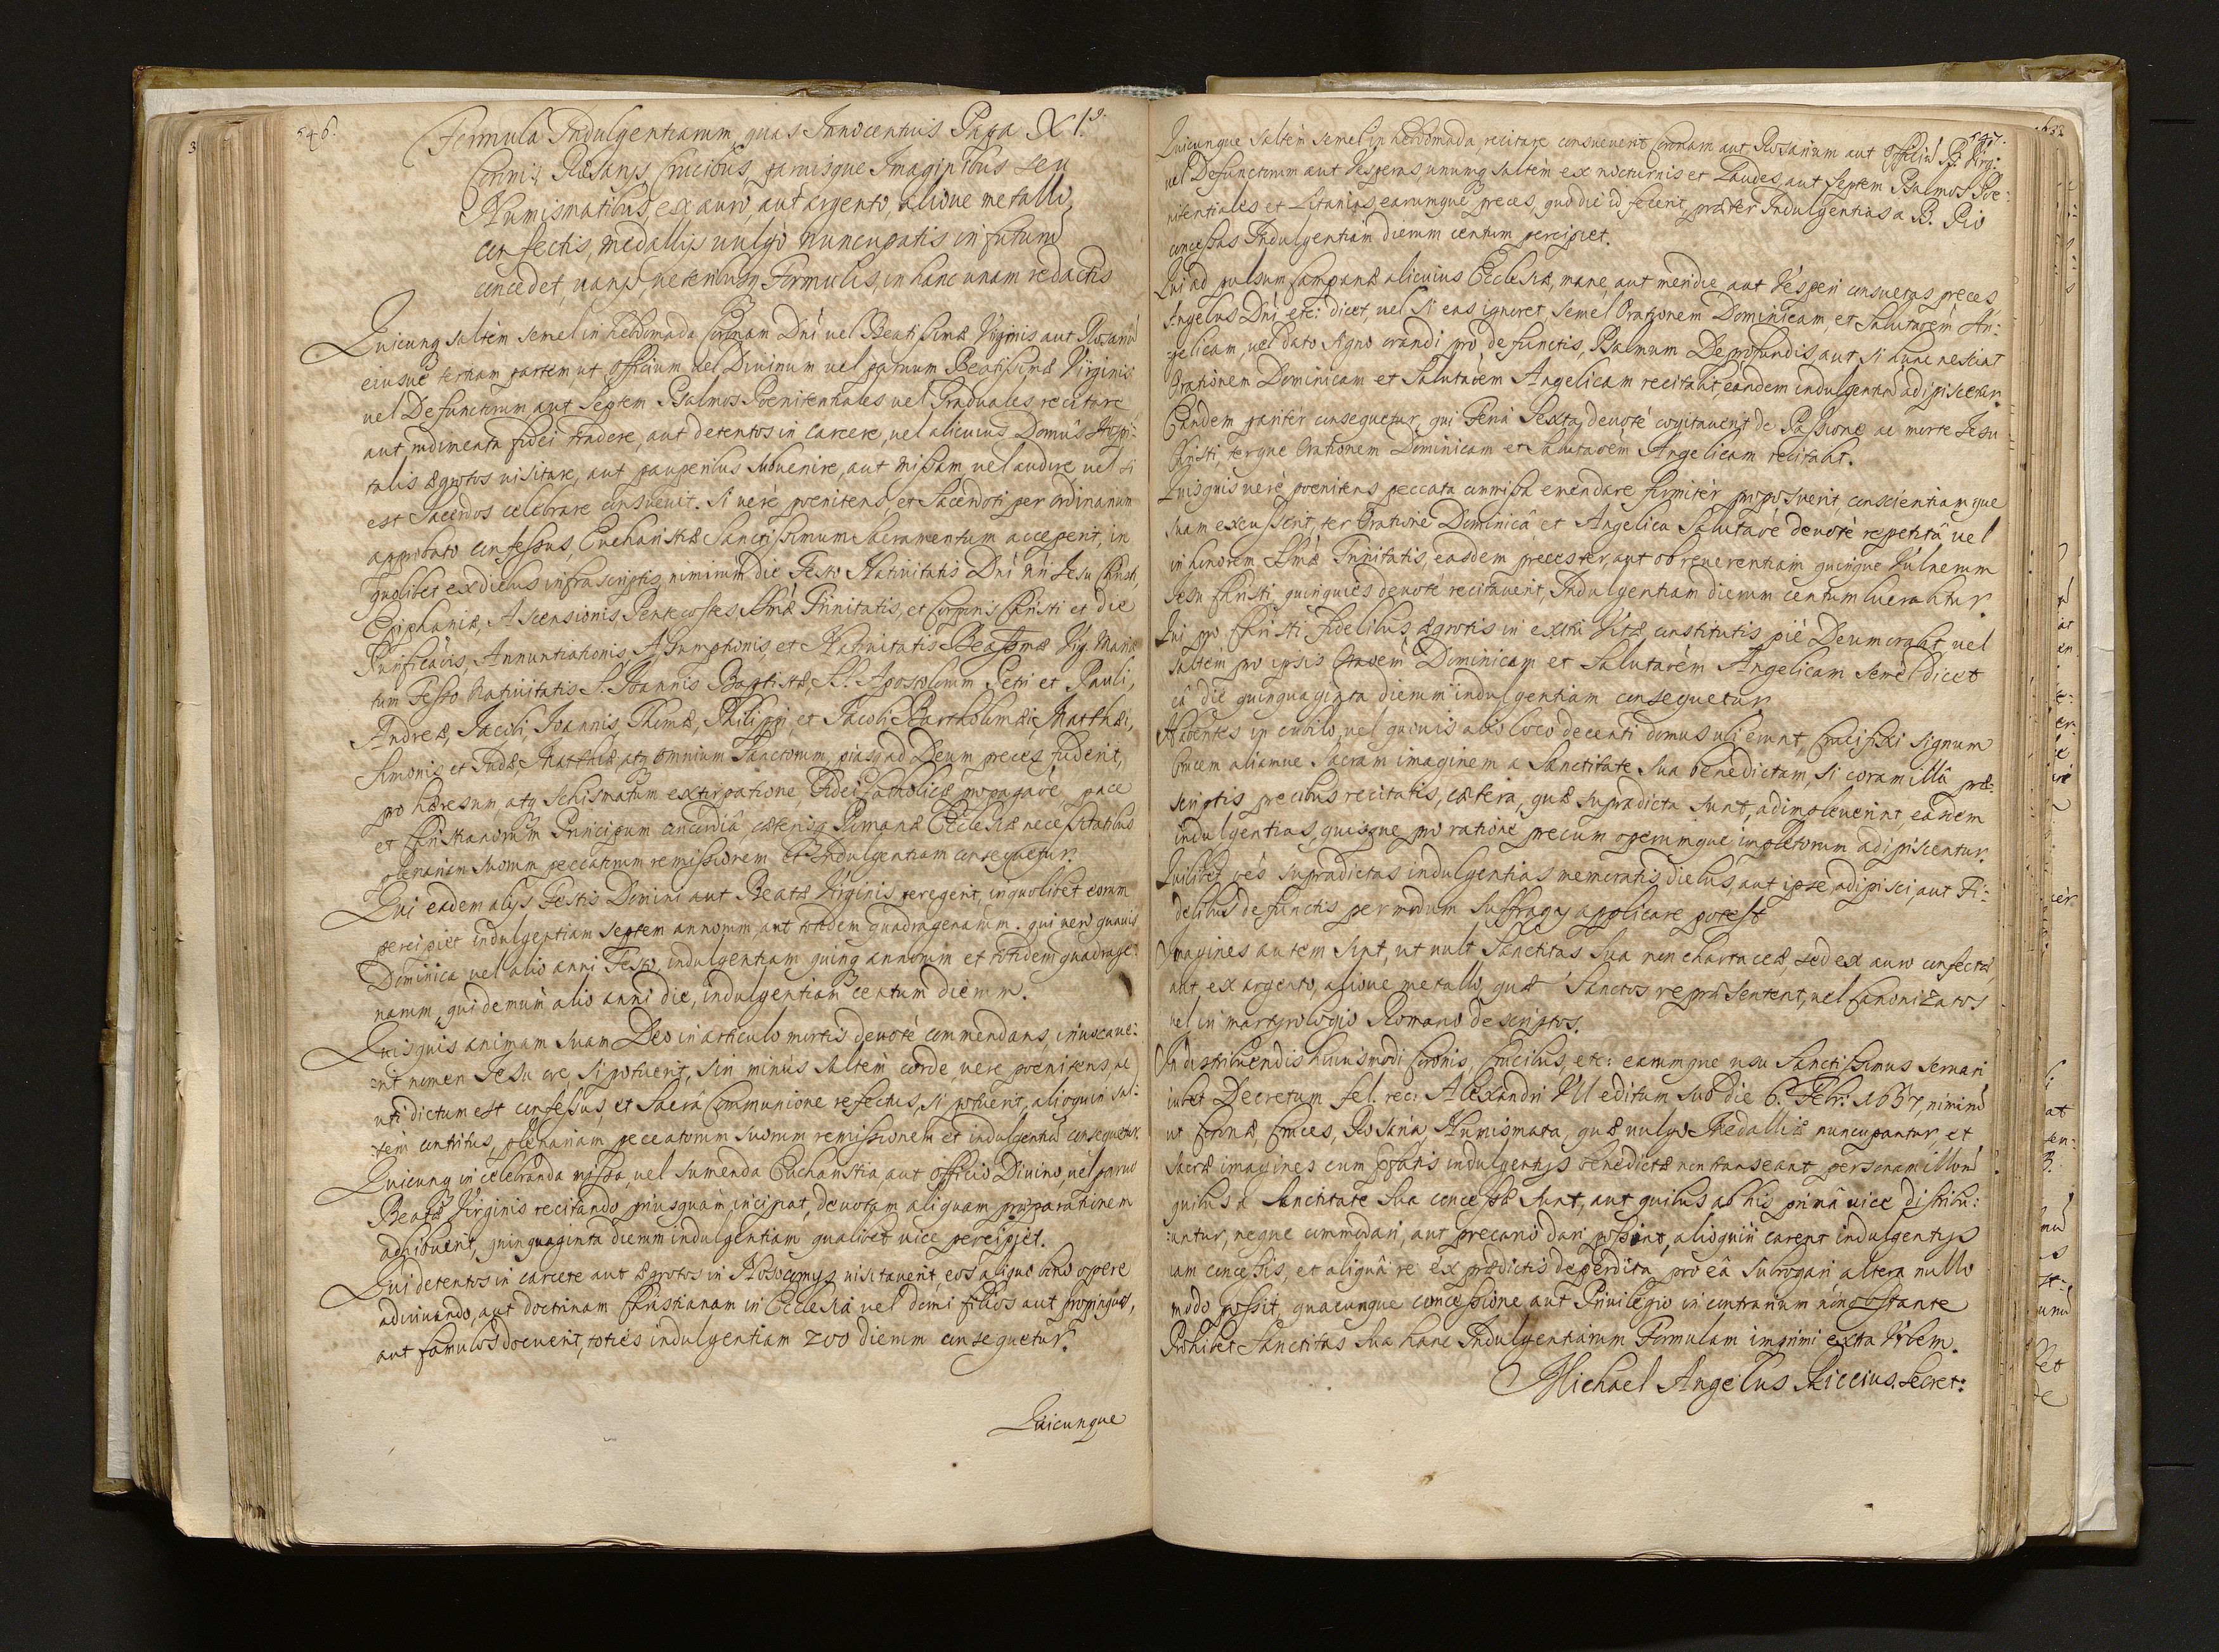 546.
Formula Indulgentiarum, quas Innocentius Papa XI.s
Coronis, Rosarijs, Crucibus, paruisque Imaginibus seu
Numismatibus, ex auro, aut argento, alioue metallo,
confectis, medallijs uulgò nuncupatis in futurũ
concedet, uarijs, ueteribusq Formulis, in hanc unam redactis
Quicunq saltèm semel in hebdomada Coronam Dni uel Beatissimæ Virginis aut Rosariũ
eiusuè tertiam partem, ut Officium uel Diuinum uel paruum Beatissimæ Virginis
uel Defunctorum, aut Septem Psalmos Poenitentiales uel Graduales recitare
aut rudimenta fidei tradere, aut detentos in Carcere, uel alicuius Domûs Hospi:
talis ægrotos uisitare, aut pauperibus subuenire, aut missam, uel audire uel si
est Sacerdos celebrare consueuit. Si uerè poenitens, et Sacerdoti per ordinarium
approbato confessus, Eucharistiæ Sanctissimum Sacramentum acceperit, in
quolibet ex diebus infrascriptis, nimirum die Festo Natiuitatis Dni nri Jesu Christi,
Epiphaniæ, Ascensionis, Pentecostes, SSmæ Trinitatis, et Corporis Christi et die
Purificaõis, Annuntiationis, Assumptionis, et Natiuitatis Beatissmæ Virg. Mariæ
tum Festo Natiuitatis S. Joannis Baptistæ, SS. Apostolorum Petri et Pauli,
Andreæ, Jacobi, Joannis, Thomæ, Philippi, et Jacobi, Bartholomæi, Matthæi,
Simonis et Judæ, Matthiæ, atq omnium Sanctorum, piasq ad Deum preces fuderit,
pro hæresum, atq schismatum extirpatione, Fidei Catholicæ propagaõe, pace
et Christianorum Principum concordiâ, cæterisq Romanæ Ecclesiæ necessitatibus
plenariam suorum peccatorum remissionem et Indulgentiam consequetur.
Qui eadem alijs Festis Domini aut Beatæ Virginis peregerit, in quolibet eorum
percipiet indulgentiam septem annorum, aut totidem quadragenarum. qui uerò quauis
Dominica uel alio anni Festo, indulgentiam quinq annorum et totidem quadrage:
narum, qui demum alio anni die, indulgentiam centum dierum.
Quisquis animam suam Deo in articulo mortis deuotè commendans, inuocaue:
:rit nomen Jesu ore, si potuerit, sin minùs saltèm corde, uere poenitens, ac
uti dictum est confessus, et Sacrâ Communione refectus, si potuerit, alioquin sal:
:tem contritus, plenariam peccatorum suorum remissionem et indulgentiã consequetur.
Quicunq in celebranda missa, uel sumenda Eucharistia, aut officio Diuino, uel paruo
Beatæ Virginis recitando priusquam incipiat, deuotam aliquam præparationem
adhibuerit, quinquaginta dierum indulgentiam qualibet uice percipiet.
Qui detentos in carcere aut ægrotos in Nosocomijs uisitauerit, eos aliquo bono opere
adiuuando, aut doctrinam Christianam in Ecclesiâ uel domi filios aut propinquos,
aut famulos docuerit, toties indulgentiam 200 dierum consequetur.
Quicunque
547.
Quicunque saltèm semel in hebdomada recitare consueuerit Coronam aut Rosarium aut Officiũ B. Virg:
uel Defunctorum aut Vesperas, unumq saltèm ex nocturnis et Laudes, aut Septem Psalmos Poe:
nitentiales et Litanias, earumque preces, quo die id fecerit, præter Indulgentias a B. Pio
concessas Indulgentiam dierum centum percipiet.
Qui ad pulsum Campanæ alicuius Ecclesiæ, mane, aut meridie, aut Vesperi consuetas preces
Angelus Dni etc: dicet, uel si eas ignoret, semel Orationem Dominicam, et Salutaõem An:
:gelicam, uel dato signo orandi pro defunctis, Psalmum De profundis, aut si hunc nesciat
Orationem Dominicam et Salutaõem Angelicam recitabit, eandem indulgentiã adipiscetur.
Eandem pariter consequetur, qui Feriâ Sextâ, deuotè cogitauerit de Passione ac morte Jesu
Christi, terque Orationem Dominicam et Salutaõem Angelicam recitabit.
Quisquis uerè poenitens peccata commissa emendare firmitèr proposuerit, conscientiamque
suam excusserit, ter Oratione Dominicâ, et Angelica Salutaõe deuotè repetitâ, uel
in honorem SSmæ Trinitatis, easdem preces ter, aut ob reuerentiam quinque Vulnerum
Jesu Christi, quinquies deuotè recitauerit, Indulgentiam dierum centum lucrabitur.
Qui pro Christi fidelibus, ægrotis in exitu Vitæ constitutis piè Deum orabit, uel
saltèm pro ipsis Oraõem Dominicam et Salutaõem Angelicam semèl dicet
eâ die quinquaginta dierum indulgentiam consequetur.
Habentes in cubilo, uel quouis alio loco decenti domus ubi erunt, Crucifixi signum
Crucem aliamue Sacram imaginem a Sanctitate Sua benedictam, si coram illâ præ:
scriptis precibus recitatis, cætera, quæ supradicta sunt, adimpleuerint, easdem
indulgentias, quisque pro ratione precum operumque impletorum adipiscentur.
Quilibet uerò supradictas indulgentias memoratis diebus, aut ipse adipisci, aut Fi:
delibus defunctis per modum suffragij applicare potest
Imagines autem sint, ut uult Sanctitas Sua non chartaceæ, sed ex auro confectæ,
aut ex argento, alioue metallo, quæ Sanctos repræsentent, uel Canonizatos
uel in martyrologio Romano descriptos.
In distribuendis huiusmodi Coronis, Crucibus, etc: earumque usu Sanctissimus seruari
iubet Decretum fel. rec: Alexandri VII editum sub die 6. Febr: 1657, nimirũ
ut Coronæ, Cruces, Rosaria, Numismata, quæ uulgo Medalliæ nuncupantur, et
sacræ imagines cum pfatis indulgentijs benedictæ non transeant personam illorũ
quibus à Sanctitate Sua concessæ sunt, aut quibus ab his primâ uice distribu:
:untur, neque commodari, aut precario dari possint, alioquin carent indulgentijs
iam concessis, et aliquâ re ex prædictis deperdita, pro eâ subrogari altera nullo
modo possit, quacunque concessione aut Priuilegio in contrarium non obstante
Prohibet Sanctitas Sua hanc Indulgentiarum Formulam imprimi extra Vrbem.
Michael Angelus Riccius Secret: